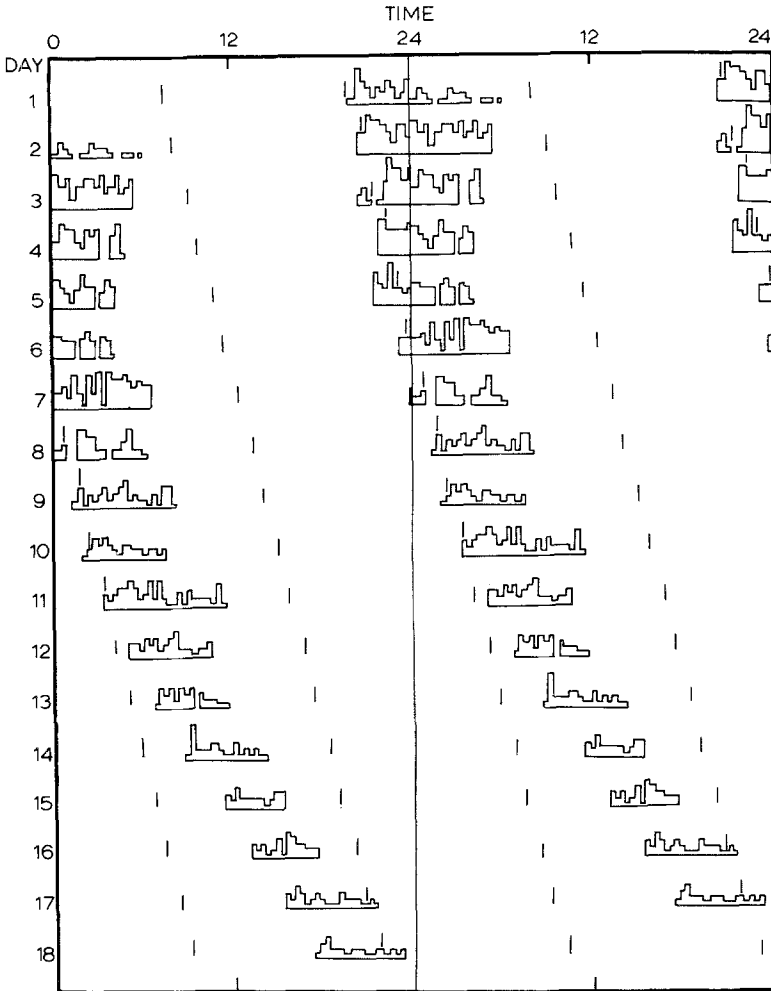 TIME
0 12 24 12 24
DAY
1
2
3
4
5
6
7
8
9
10
11
12
13
14
15
16
17
18